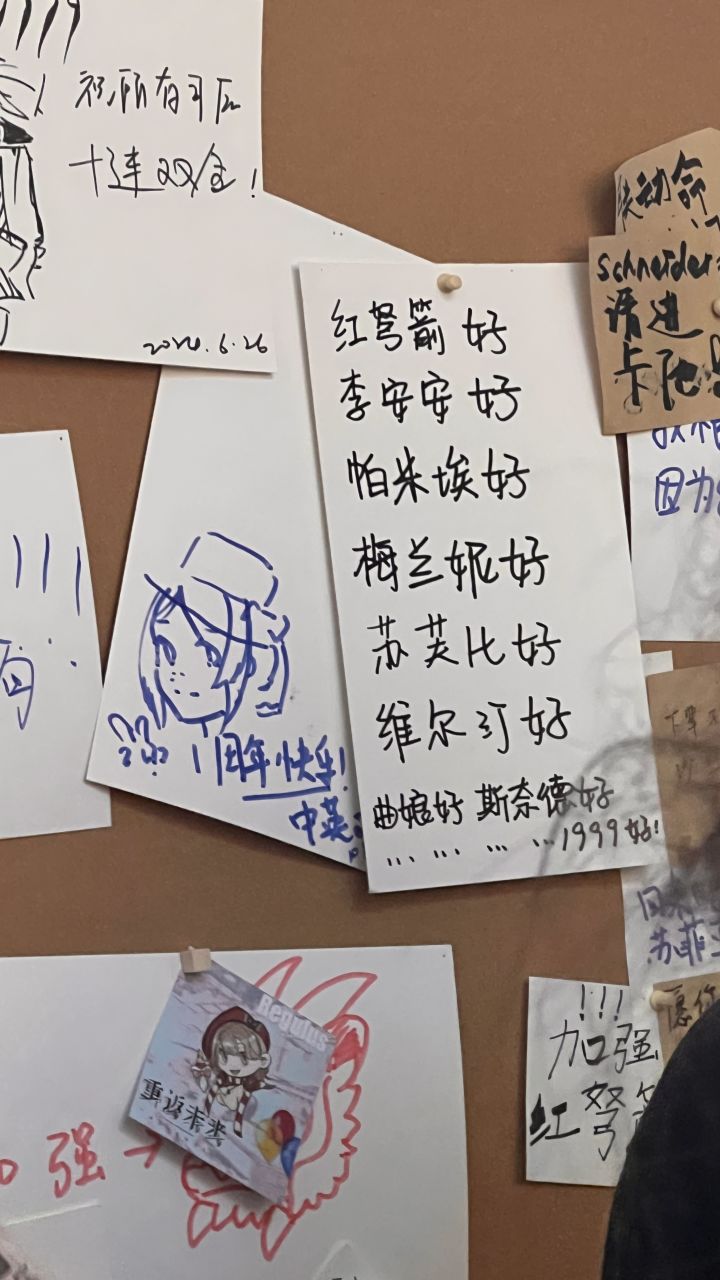 祝所有司辰
十连双金!
2024.6.26
联动命
schneider
请进
卡池
因为
红弩箭 好
李安安 好
帕米埃好
梅兰妮好
苏芙比好
维尔汀好
曲娘好 斯奈德好
... ... ... ...1999好!
!!!
1周年快乐!
中英
苏菲
愿你
!!!
加强
红弩箭
Regulus
重返未来
强→